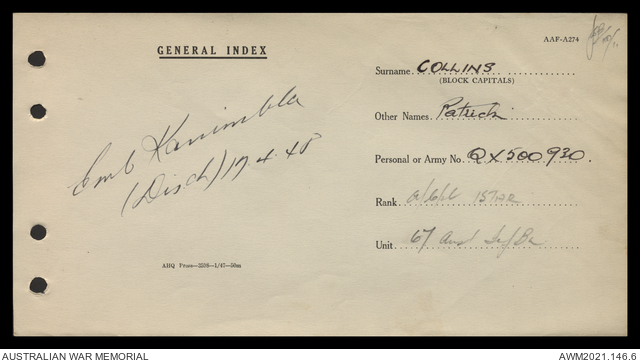 GENERAL INDEX
Emb Kanimbla
(Disch) 17.4.48
AHQ Press—3596—1/47—50m
AAF-A274
Surname COLLINS
(BLOCK CAPITALS)
Other Names. Patrick
Personal or Army No. QX500930.
Rank
Unit 67 Aust Inf Bn
AUSTRALIAN WAR MEMORIAL
AWM2021.146.6